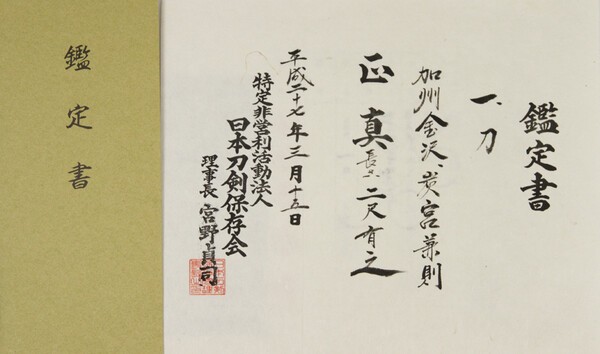 鑑定書
鑑定書
一、刀
加州金沢、炭宮兼則
正真 長サ 二尺有之
平成二十七年三月十五日
特定非営利活動法人
日本刀剣保存会
理事長 宮野貞司